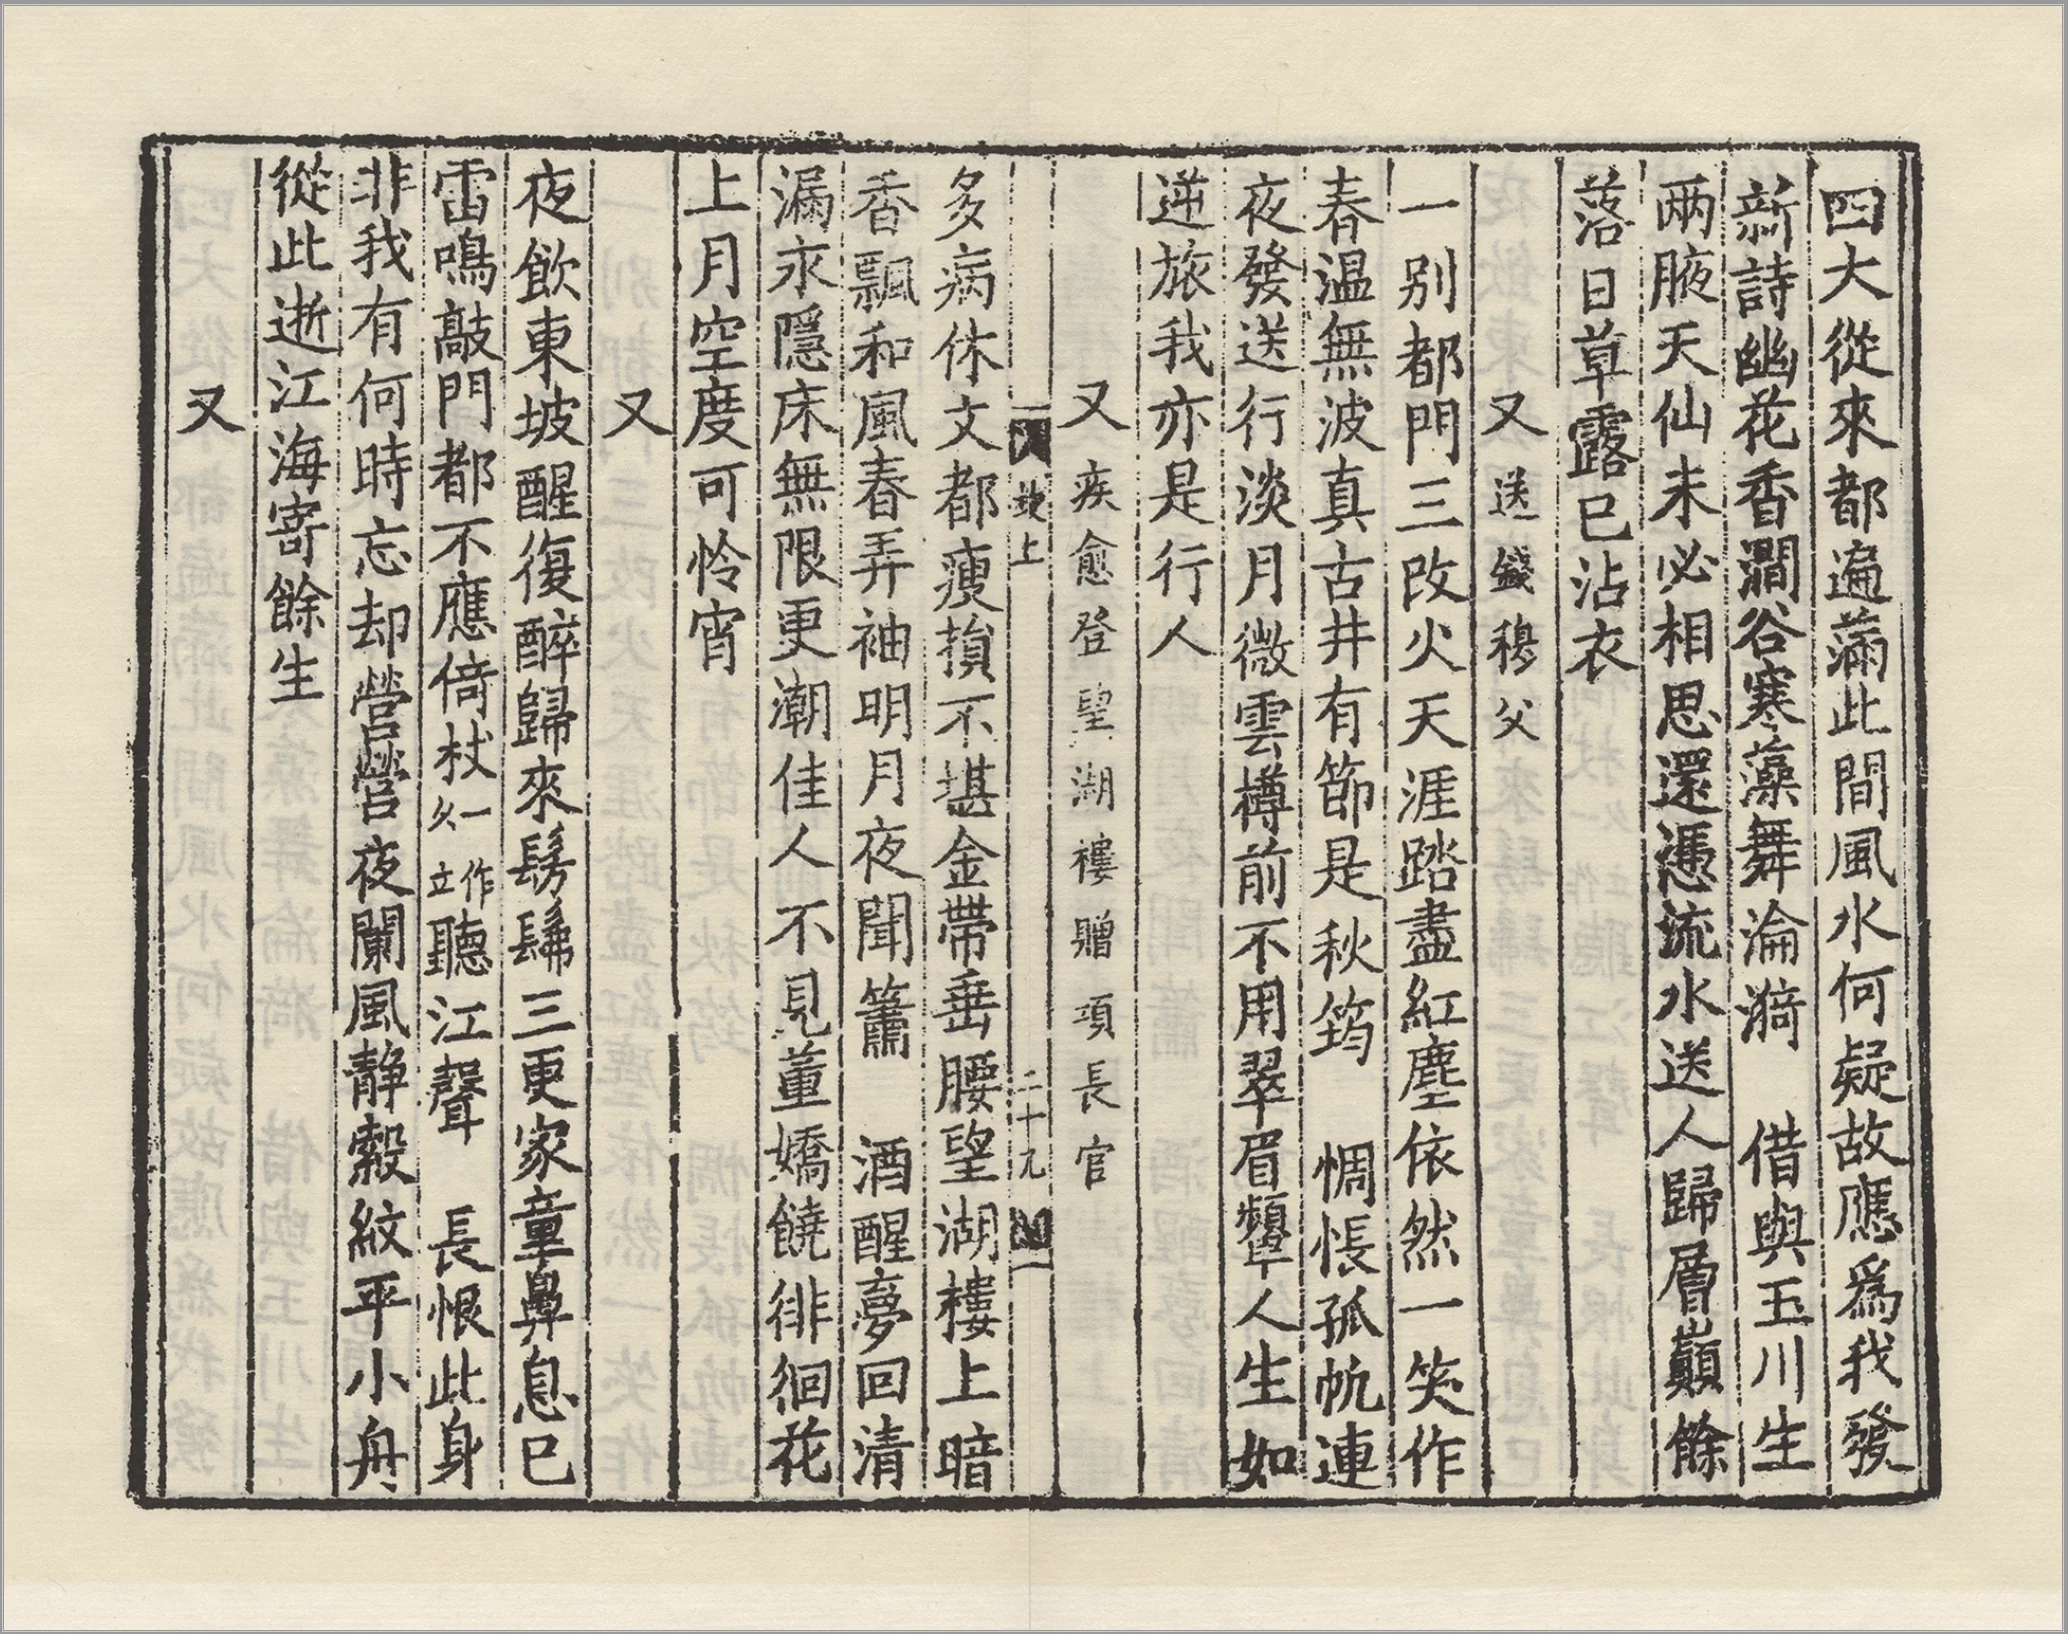 四大從來都遍滿此間風水何疑故應爲我發
新詩幽花香澗谷寒藻舞淪漪　借與玉川生
兩腋天仙未必相思還憑流水送人歸層巔餘
落日草露已沾衣
又送錢穆父
一別都門三改火天涯踏盡紅塵依然一笑作
春温無波真古井有節是秋筠　惆悵孤帆連
夜發送行淡月微雲樽前不用翠眉顰人生如
逆旅我亦是行人
又疾愈登望湖樓贈項長官
坡上
二十九
多病休文都瘦損不堪金帶垂腰望湖樓上暗
香飄和風春弄袖明月夜聞簫　酒醒夢回清
漏永隱床無限更潮佳人不見董嬌饒徘徊花
上月空度可怜宵
又
夜飲東坡醒復醉歸來髣髴三更家童鼻息已
雷鳴敲門都不應倚杖一作久立聽江聲　長恨此身
非我有何時忘却營營夜闌風静縠紋平小舟
從此逝江海寄餘生
又